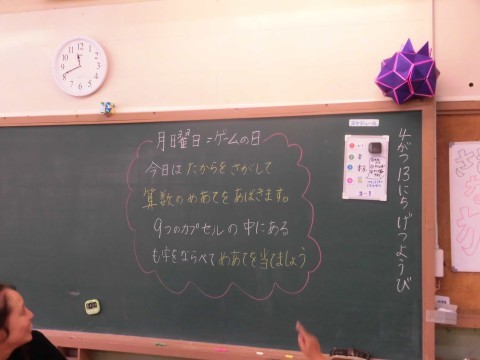 月曜日=ゲームの日
今日は たからを さがして
算数のめあてを あばきます。
9つのカプセルの 中にある
も字をならべて めあてを当てましょう
スケジュール
4がつ13にち げつようび